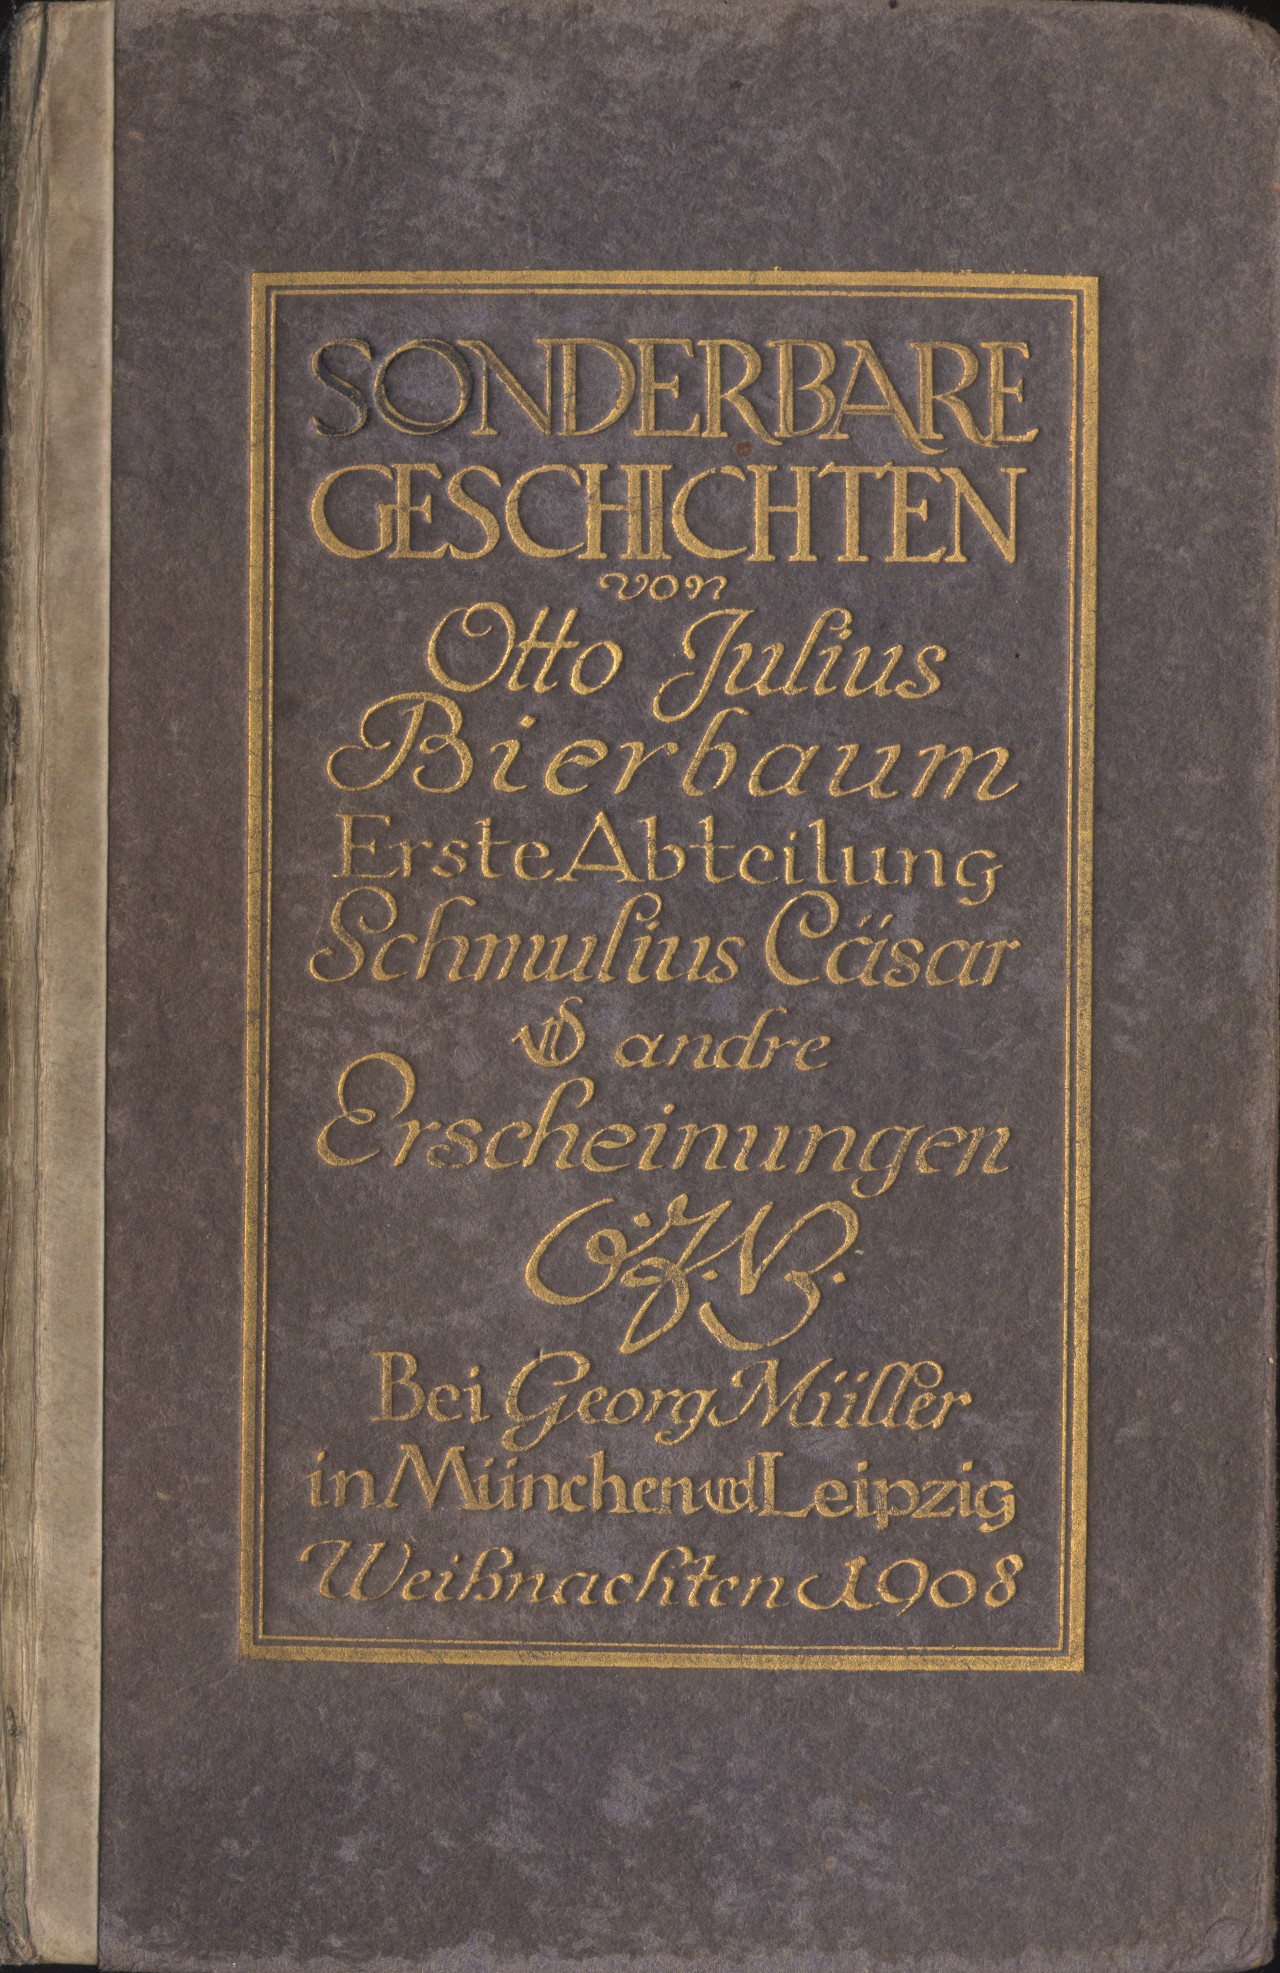 SONDERBARE
GESCHICHTEN
von
Otto Julius
Bierbaum
Erste Abteilung
Schmulius Cäsar
und andre
Erscheinungen
O.J.B.
Bei Georg Müller
in München und Leipzig
Weihnachten 1908